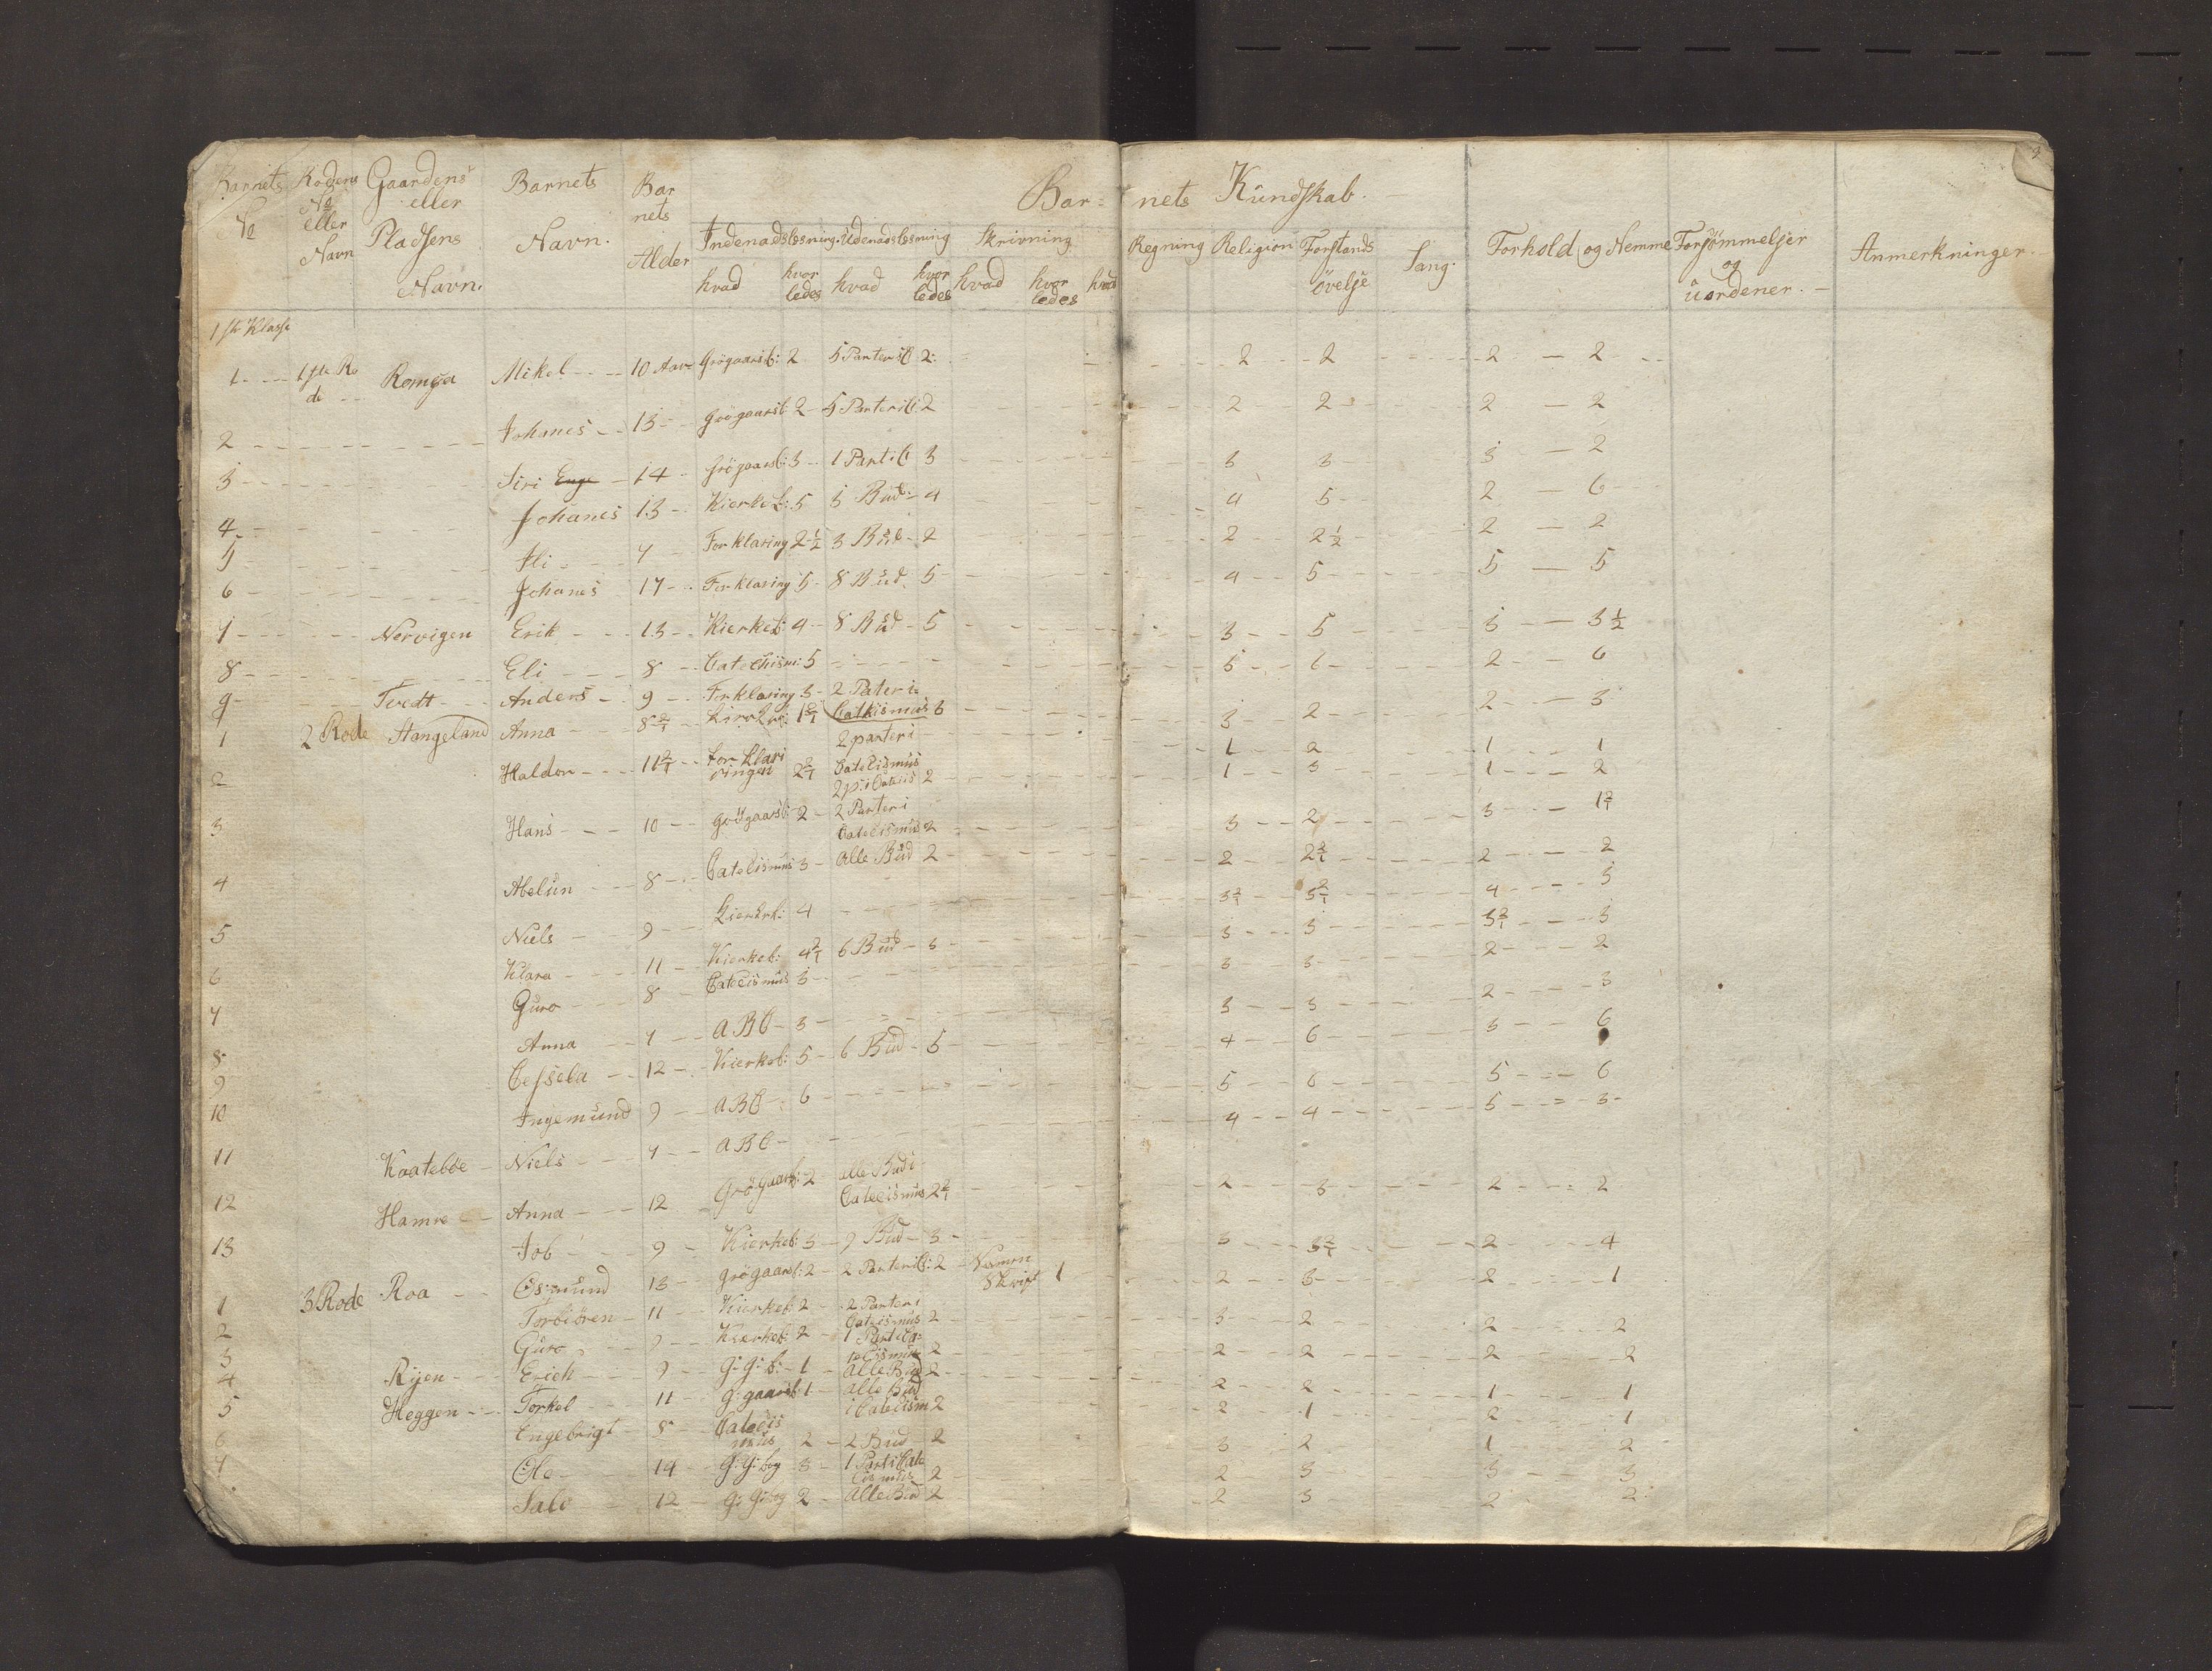 Barnets No Rodens No eller Navn Gaardens eller Pladsens Navn. Barnets Navn. Barnets Alder Bar= nets Kundskab.
Indenadslesning. Udenadslesning Skrivning Regning Religion Forstands övelse Sang. Forhold og Nemme Forsömmelser og uordener. Anmerkninger.
hvad hvorledes hvad hvorledes hvad hvorledes hvad
3
1ste Klasse
1 1ste Rode Mikel 10 Aar Grögaardsb: 2 5 Parter i C 2 2 2 2 2
2 Johanes 13 Grögaardsb 2 5 Parter i C 2 2 2 2 2
3 Siri 14 Grögaardsb: 3 1 Part i C 3 3 3 3 2
4 Johanes 13 Kierkeb: 5 3 Bud 4 4 5 2 6
5 7 Forklaring 2½ 3 Bud 2 2 2½ 2 2
6 Johanes 17 Forklaring 5 8 Bud 5 4 5 5 5
7 Nervigen Erik 13 Kierkeb: 4 8 Bud 5 3 5 3 3½
8 Eli 8 Catechism: 5 5 6 2 6
9 Tvedt Anders 9 Forklaring 3 2 Parter i Catkismus 3 3 2 2 3
1 2 Rode Stangeland Anna 8½ 1½ 2 parter i Catecismus 1 2 1 1
2 Haldor 11½ Forklaringen 2½ 2 p: i Catecis 2 1 3 1 2
3 Hans 10 Grögaardsb: 2 2 Parter i Catecismus 2 3 2 3 1½
4 Abelun 8 Catecismus 3 alle Bud 2 2 2½ 2 2
5 Niels 9 Kierkeb: 4 3½ 3½ 4 3
6 Klara 11 Kierkeb: 4½ 6 Bud 3 3 3 3½ 3
7 Guro 8 Catecismus 3 3 3 2 2
8 Anna 7 ABC 3 3 3 2 3
9 12 Kierkeb: 5 6 Bud 5 4 6 3 6
10 Ingemund 9 ABC 6 5 6 5 6
11 Kaateböe Niels 7 ABC 4 4 5 3
12 Hamre Anna 12 Grögaardsb: 2 alle Bud i Catecismus 2½ 2 3 2 2
13 Job 9 Kierkeb: 3 9 Bud 3 3 3½ 2 4
1 3 Rode Roa Osmund 13 Grögaardsb: 2 2 Parter i C: 2 Skrift 1 2 3 2 1
2 Torbiören 11 Kierkeb: 2 2 Parter i Catecismus 2 3 2 2 2
3 Guro 9 Kierkeb: 2 1 Part i Catecismus 2 2 2 2 2
4 Rijen Erich 9 G: G: b: 1 Alle Bud 2 2 2 1 1
5 Heggen Torkel 11 G: gaardsb: 1 alle Bud i Catecism 2 2 1 2 1
6 Engebrigt 8 Catecismus 2 2 Bud 2 3 2 1 2
7 Ole 14 G: G: bog 3 1 Part i Catecismus 2 2 3 3 3
Salve 12 G: G: bog 2 Alle Bud 2 2 3 2 2